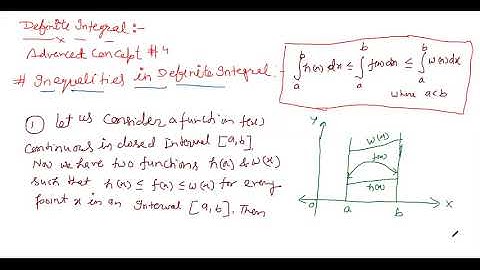 Definite Integral:-
x
Advanced Concept # 4
# Inequalities in Definite Integral:-
∫ₐᵇ h(x) dx ≤ ∫ₐᵇ f(x) dx ≤ ∫ₐᵇ w(x) dx
where a<b
① Let us Consider a function f(x)
Continuous in closed Interval [a,b].
Now we have two functions h(x) & w(x)
such that h(x) ≤ f(x) ≤ w(x) for every
point x in an Interval [a,b]. Then
Y
w(x)
f(x)
h(x)
O a b X